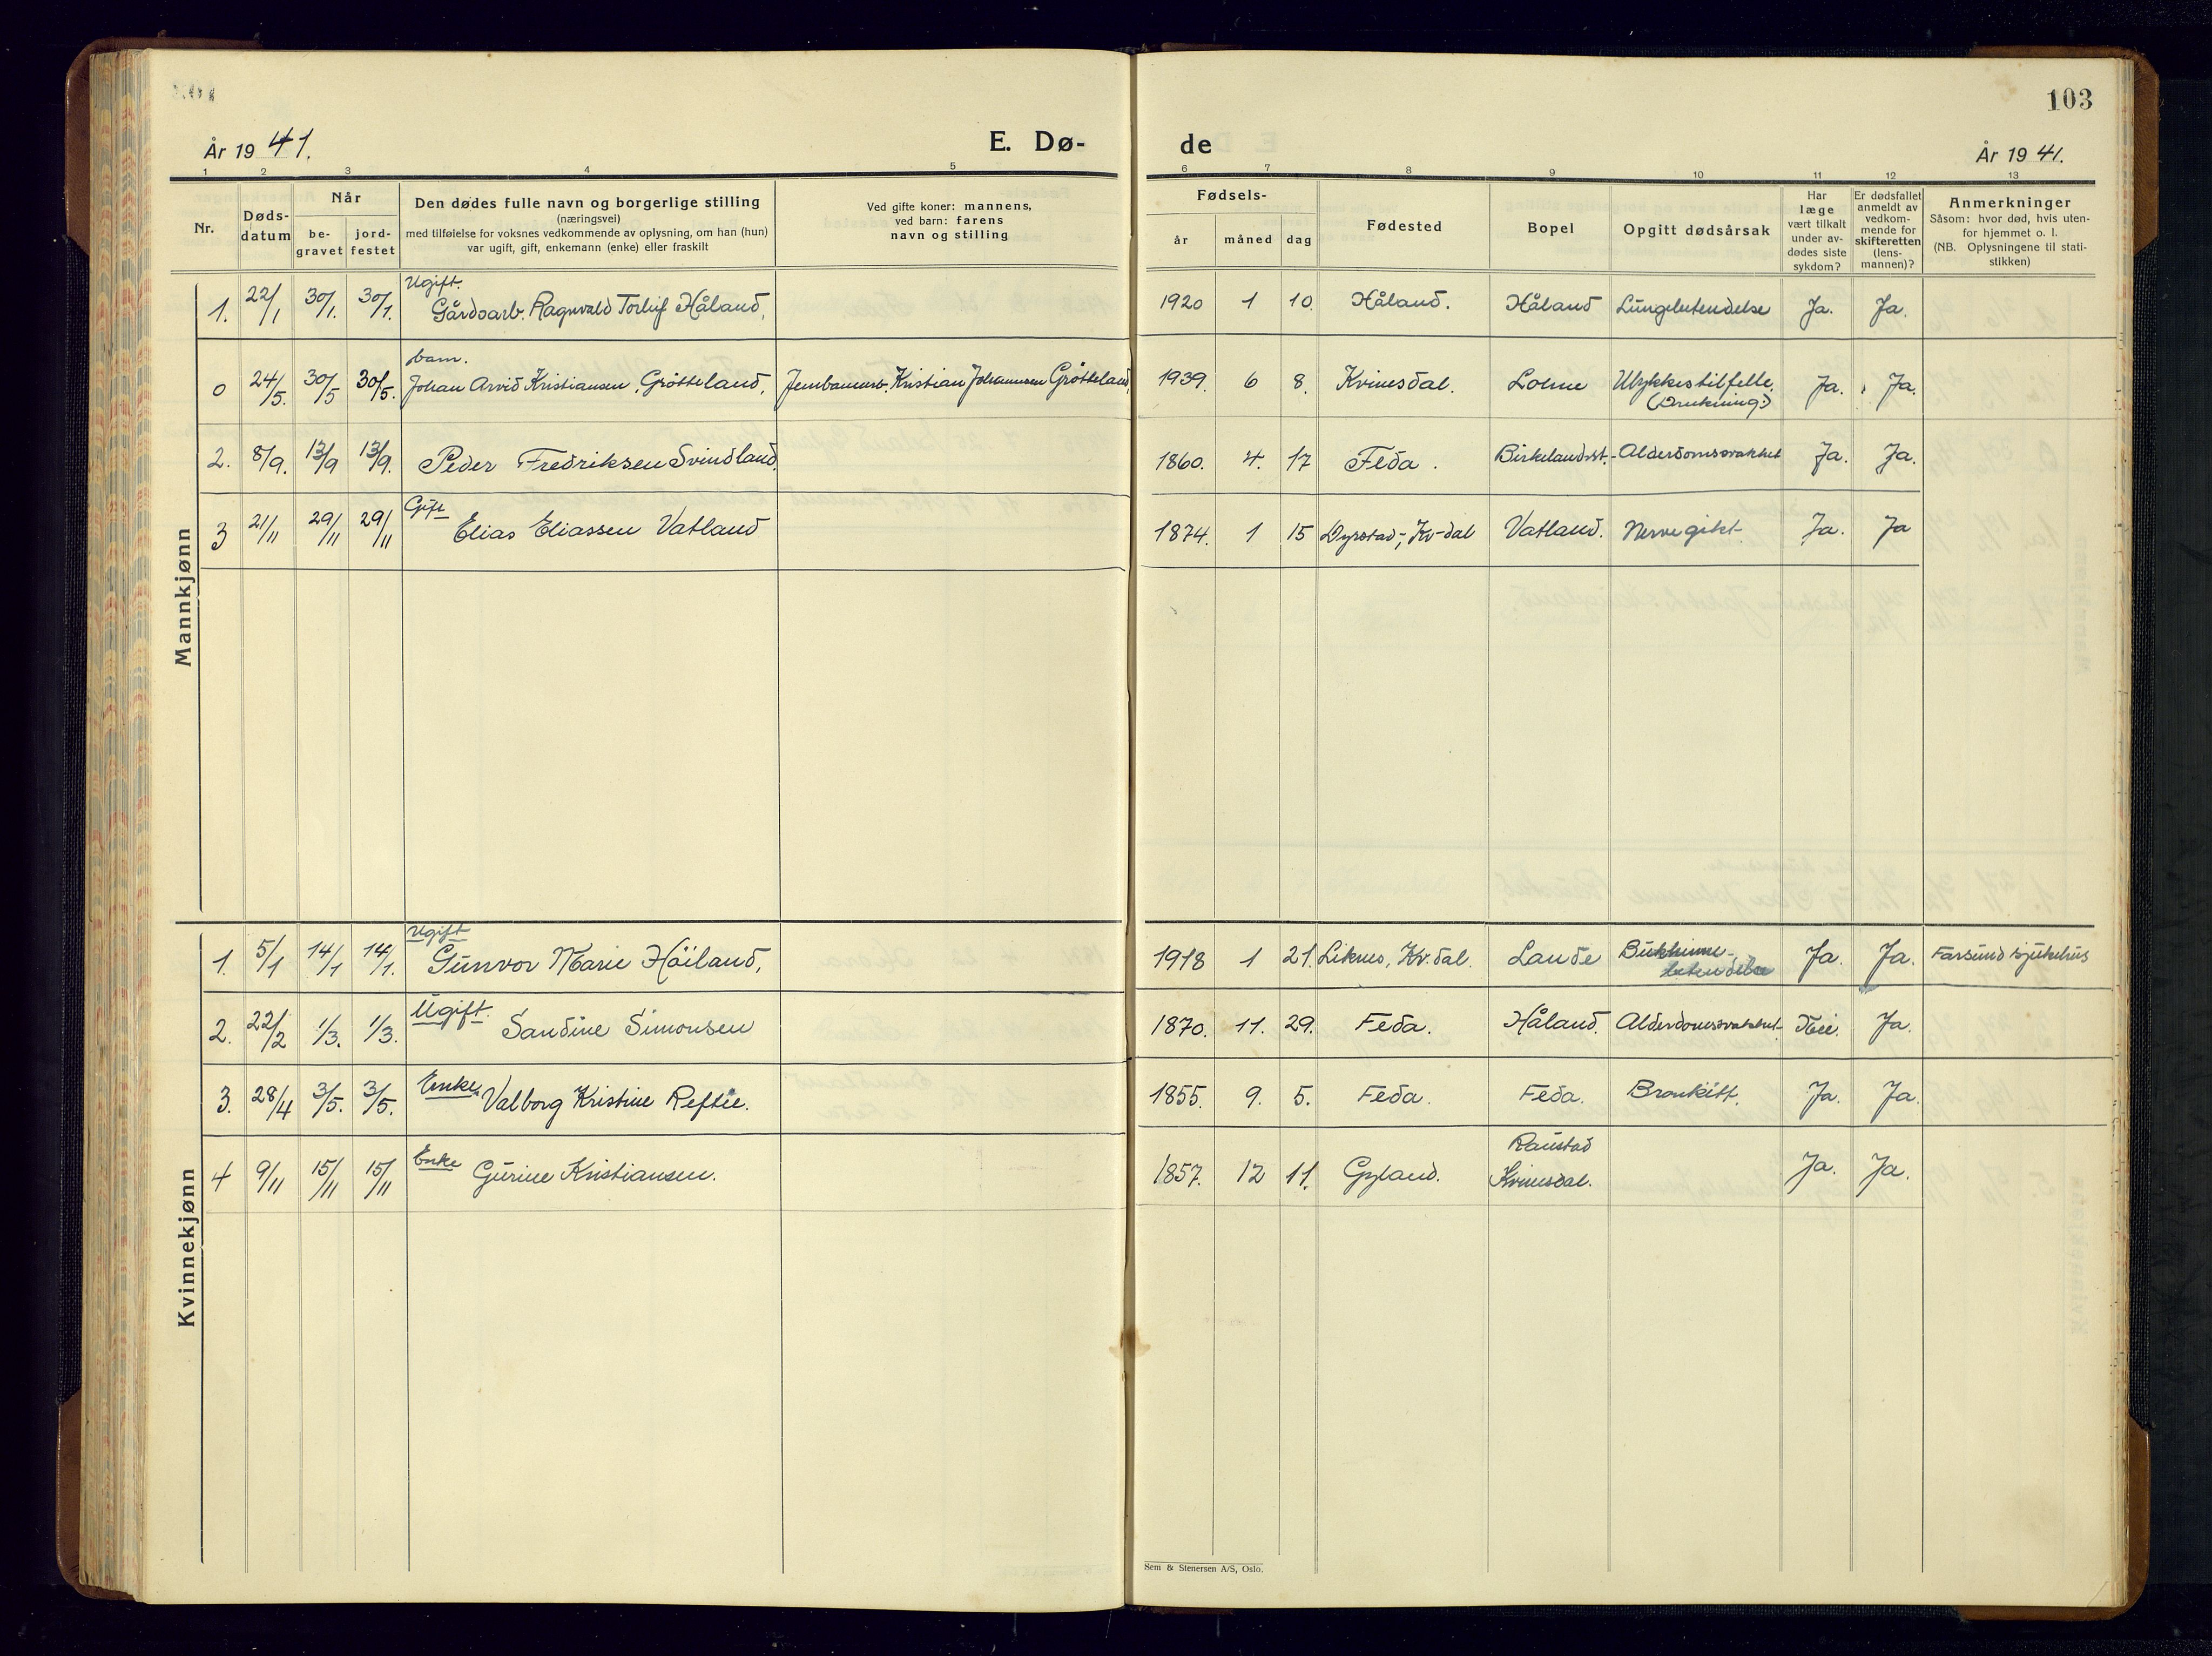 103
År 1941.
E. Dø-
de
År 1941.
1 2 3 4 5 6 7 8 9 10 11 12 13
Nr.
Døds-
datum
Når
be-
gravet
jord-
festet
Den dødes fulle navn og borgerlige stilling
(næringsvei)
med tilføielse for voksnes vedkommende av oplysning, om han (hun)
var ugift, gift, enkemann (enke) eller fraskilt
Ved gifte koner: mannens,
ved barn: farens
navn og stilling
Fødsels-
år
måned
dag
Fødested
Bopel
Opgitt dødsårsak
Har
læge
vært tilkalt
under av-
dødes siste
sykdom?
Er dødsfallet
anmeldt av
vedkom-
mende for
skifteretten
(lens-
mannen)?
Anmerkninger
Såsom: hvor død, hvis uten-
for hjemmet o. l.
(NB. Oplysningene til stati-
stikken)
Mannkjønn
Ugift.
1. 22/1 30/1. 30/1. Gårdsarb. Ragnvald Torleif Håland, 1920 1 10. Håland. Håland Lungebetendelse Ja. Ja.
barn.
0 24/5. 30/5 30/5. Johan Arvid Kristiansen, Grötteland, Jernbanearb. Kristian Johannsen Grötteland, 1939. 6 8. Kvinesdal. Lolme Ulykkestilfelle, Ja. Ja.
(Drukning.)
2. 8/9. 13/9 13/9. Peder Fredriksen Svindland, 1860. 4. 17 Feda. Birkelandsst. Alderdomssvakhet Ja. Ja.
Gift
3 21/11 29/11 29/11 Elias Eliassen Vatland 1874. 1 15 Dyrstad-, Kv-dal Vatland. Nervegikt Ja. Ja
Kvinnekjønn
Ugift
1. 5/1 14/1 14/1. Gunvor Marie Höiland, 1918 1 21. Liknes, Kv.dal. Lande Bukhinne- Ja. Ja. Farsund sjukehus
betendelse
Ugift.
2. 22/2 1/3. 1/3. Sandine Simonsen 1870. 11. 29. Feda. Håland. Alderdomssvakhet Nei. Ja.
3. 28/4 3/5. 3/5. Enke. Valborg Kristine Reftie. 1855. 9. 5. Feda. Feda. Bronkitt. Ja. Ja.
Raustad
4 9/11 15/11 15/11 Enke Gurine Kristiansen. 1857. 12 11. Gyland. Kvinesdal. Ja. Ja.
Sem & Stenersen A/S, Oslo.